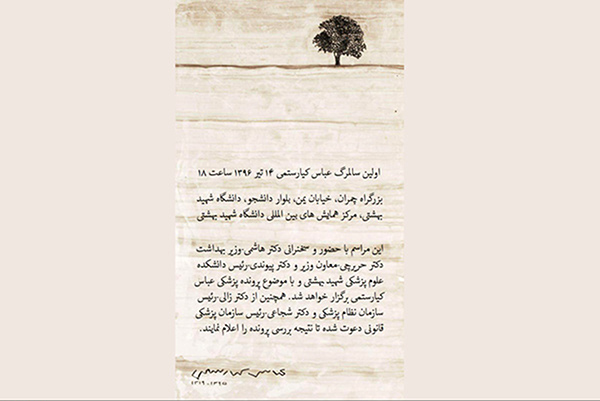 اولین سالمرگ عباس کیارستمی ۱۴ تیر ۱۳۹۶ ساعت ۱۸
بزرگراه چمران، خیابان یمن، بلوار دانشجو، دانشگاه شهید
بهشتی، مرکز همایش های بین المللی دانشگاه شهید بهشتی
این مراسم با حضور و سخنرانی دکتر هاشمی-وزیر بهداشت
دکتر حریرچی-معاون وزیر و دکتر پیوندی-رئیس دانشکده
علوم پزشکی شهید بهشتی و با موضوع پرونده پزشکی عباس
کیارستمی برگزار خواهد شد. همچنین از دکتر زالی-رئیس
سازمان نظام پزشکی و دکتر شجاعی-رئیس سازمان پزشکی
قانونی دعوت شده تا نتیجه بررسی پرونده را اعلام نمایند.
عباس کیارستمی
۱۳۱۹-۱۳۹۵